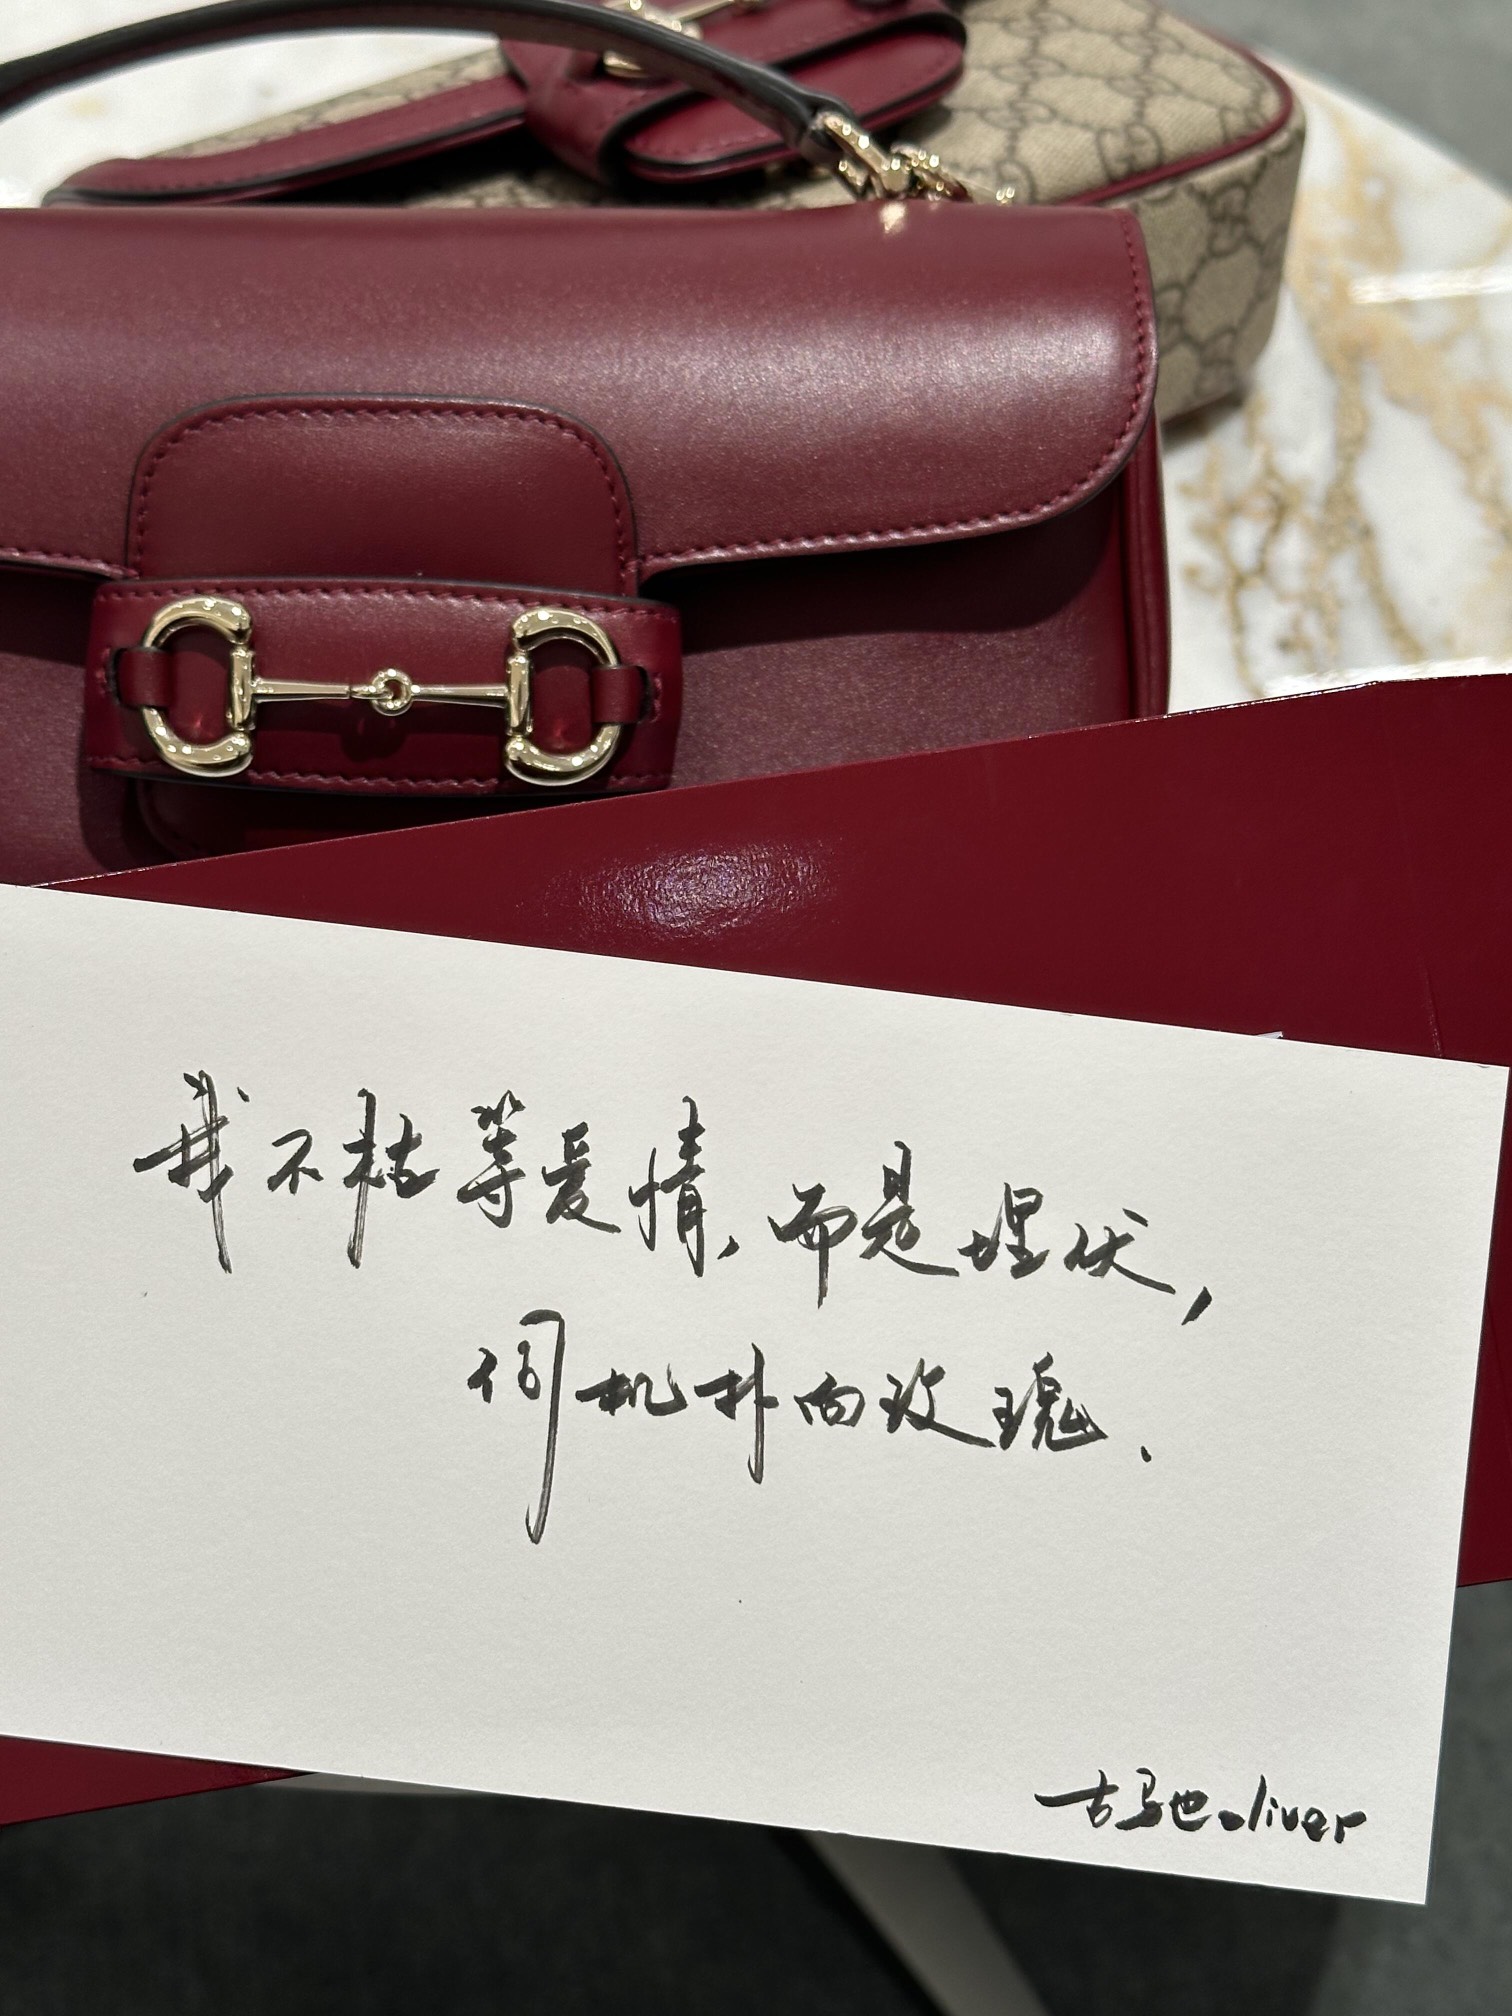 我不枯等爱情，而是埋伏，
伺机扑向玫瑰.
古驰oliver